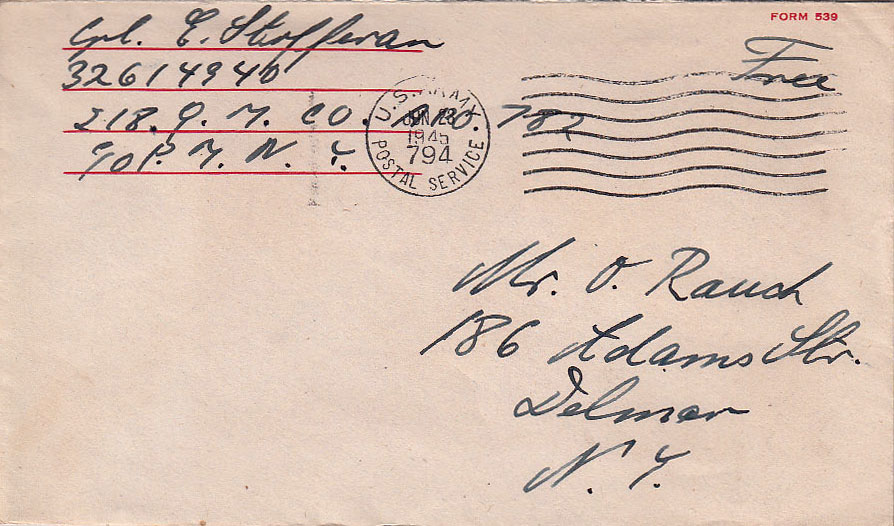 FORM 539
Cpl. E.
32614940
Free
218. Q. M. CO. A.P.O. 782
℅ P. M. N. Y.
U.S. ARMY
JUN 23
1945
794
POSTAL SERVICE
Mr. O. Rauch
186 Adams Str.
Delmar
N. Y.